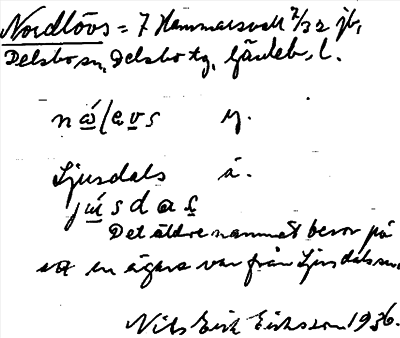 Nordlövs = 7 Hammarsvall 7/32 jb,
Delsbo sn, Delsbo tg, Gävleb. l.
nålevs y.
Ljusdals ä.
jusdas
Det äldre namnet beror på
att en ägare var från Ljusdals sn.
Nils Erik Eriksson 1936.